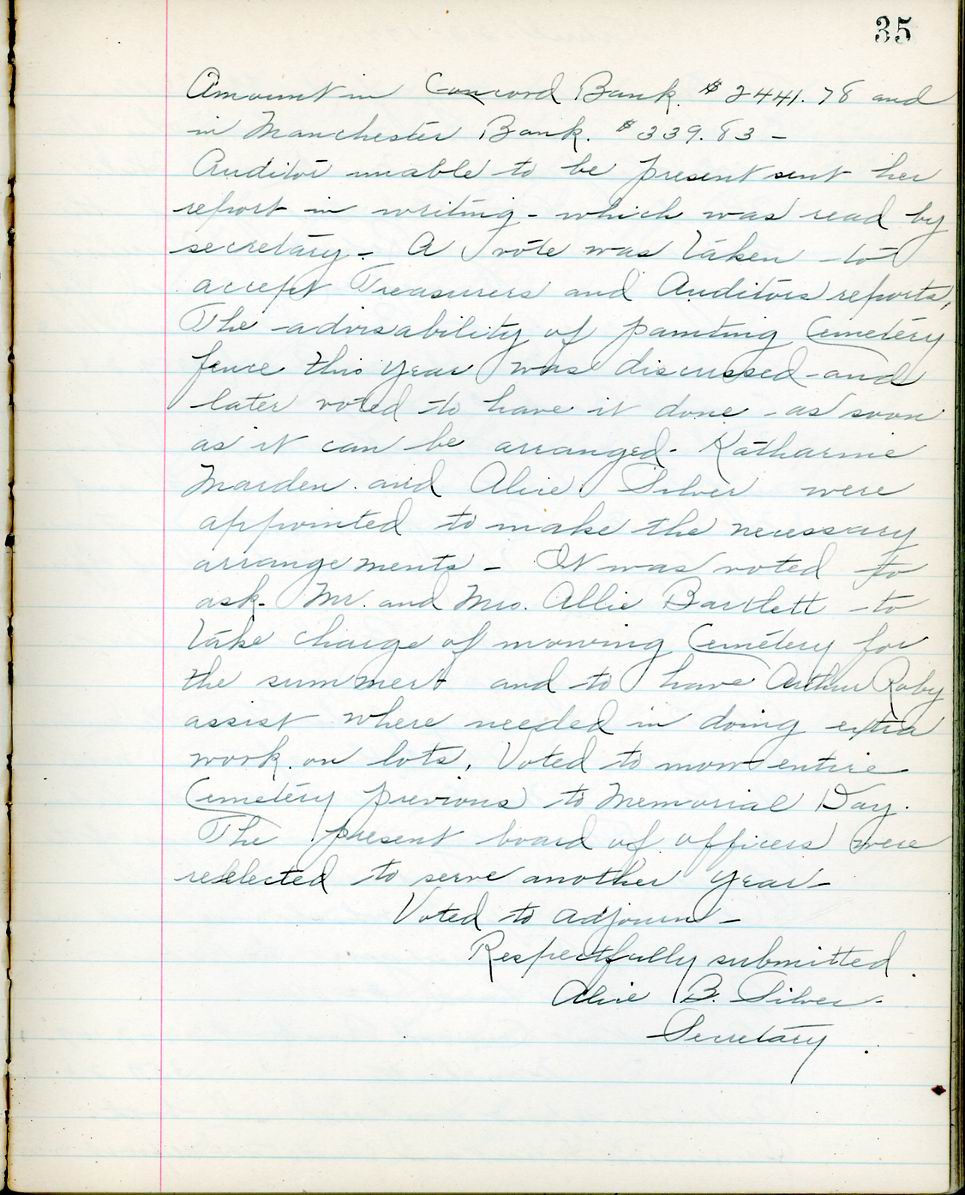 35
Amount in Concord Bank. $2441.78 and
in Manchester Bank. $339.83 -
Auditor unable to be present sent her
report in writing - which was read by
secretary - A vote was taken to
accept Treasurers and Auditors reports.
The advisability of painting Cemetery
fence this year was discussed and
later voted to have it done - as soon
as it can be arranged - Katharine
Marden and Alice Silver were
appointed to make the necessary
arrangements - It was voted to
ask Mr. and Mrs. Allie Bartlett to
take charge of mowing Cemetery for
the summer and to have Arthur Roby
assist where needed in doing extra
work on lots. Voted to mow entire
Cemetery previous to Memorial Day.
The present board of officers were
reelected to serve another year -
Voted to adjourn -
Respectfully submitted
Alice B. Silver -
Secretary